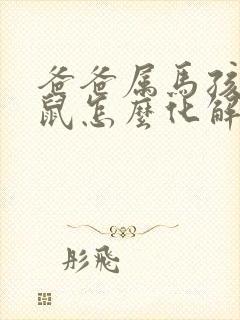 爸爸属马孩
鼠怎麽化解
彤飛